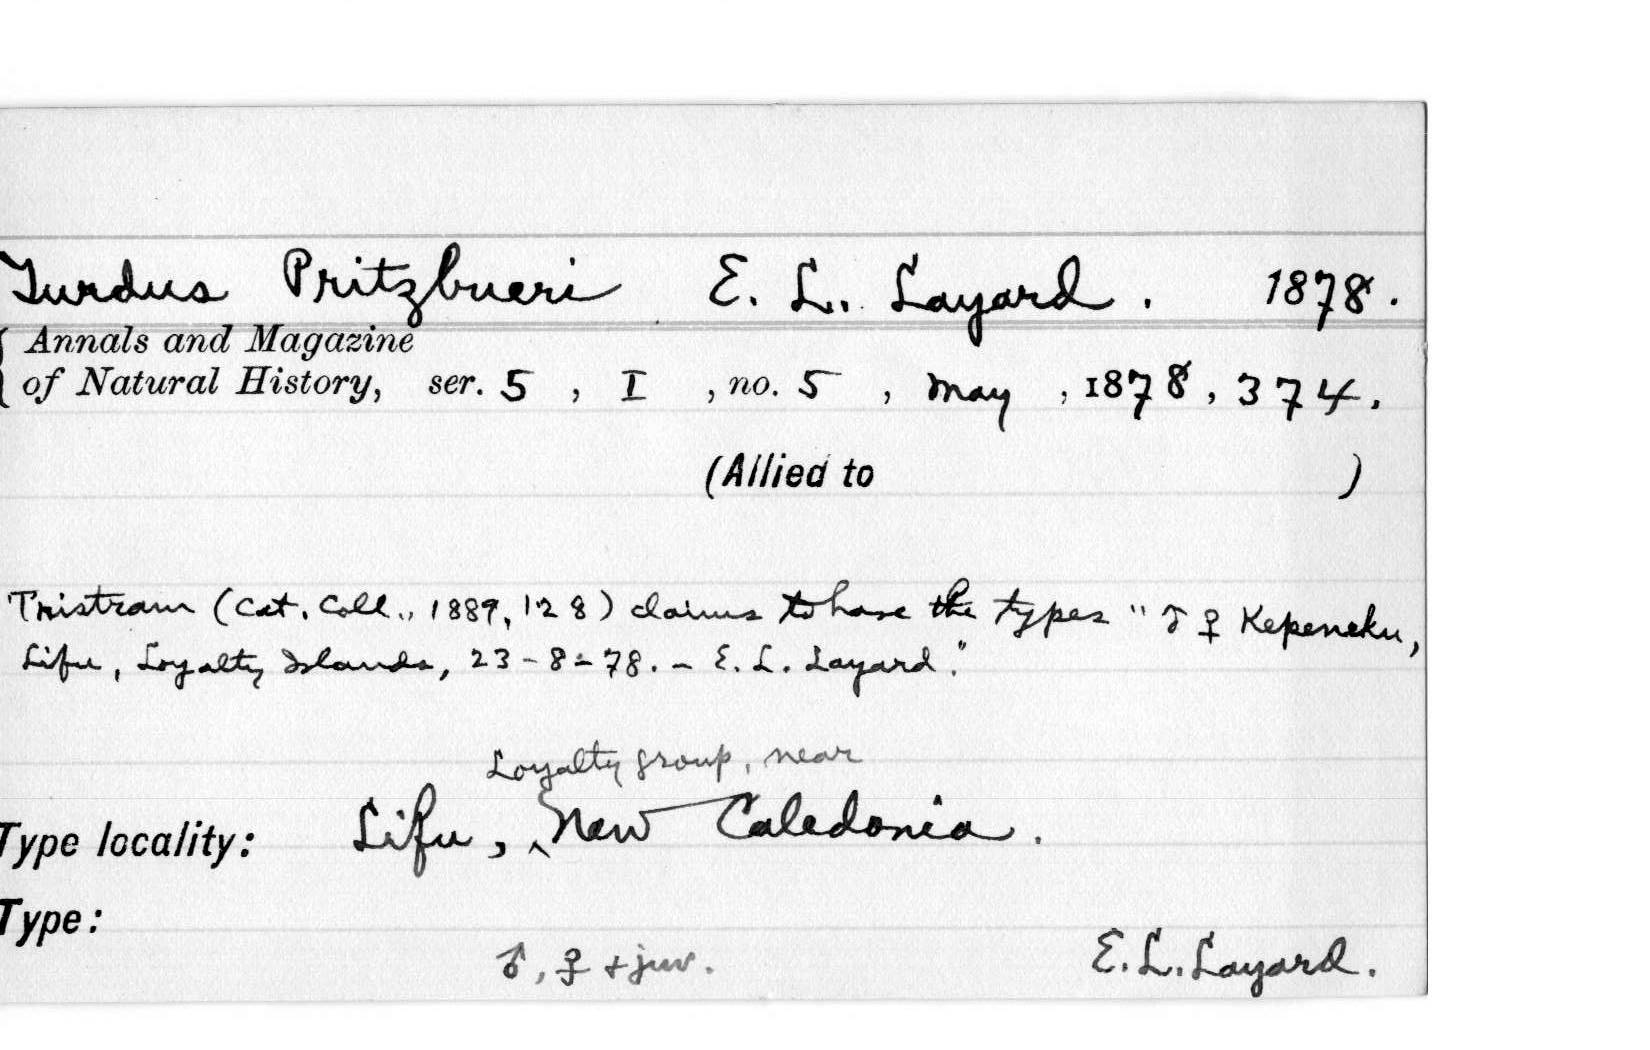 Turdus Pritzbueri E. L. Layard. 1878.
Annals and Magazine
of Natural History, ser. 5, I, no. 5, May, 1878, 374.
(Allied to )
Tristram (Cat. Coll., 1889, 128) claims to have the types "♂ ♀ Kepeneku,
Lifu, Loyalty Islands, 23-8-78. - E. L. Layard."
Loyalty group, near
Type locality: Lifu, ^ New Caledonia.
Type:
♂, ♀ + juv. E. L. Layard.